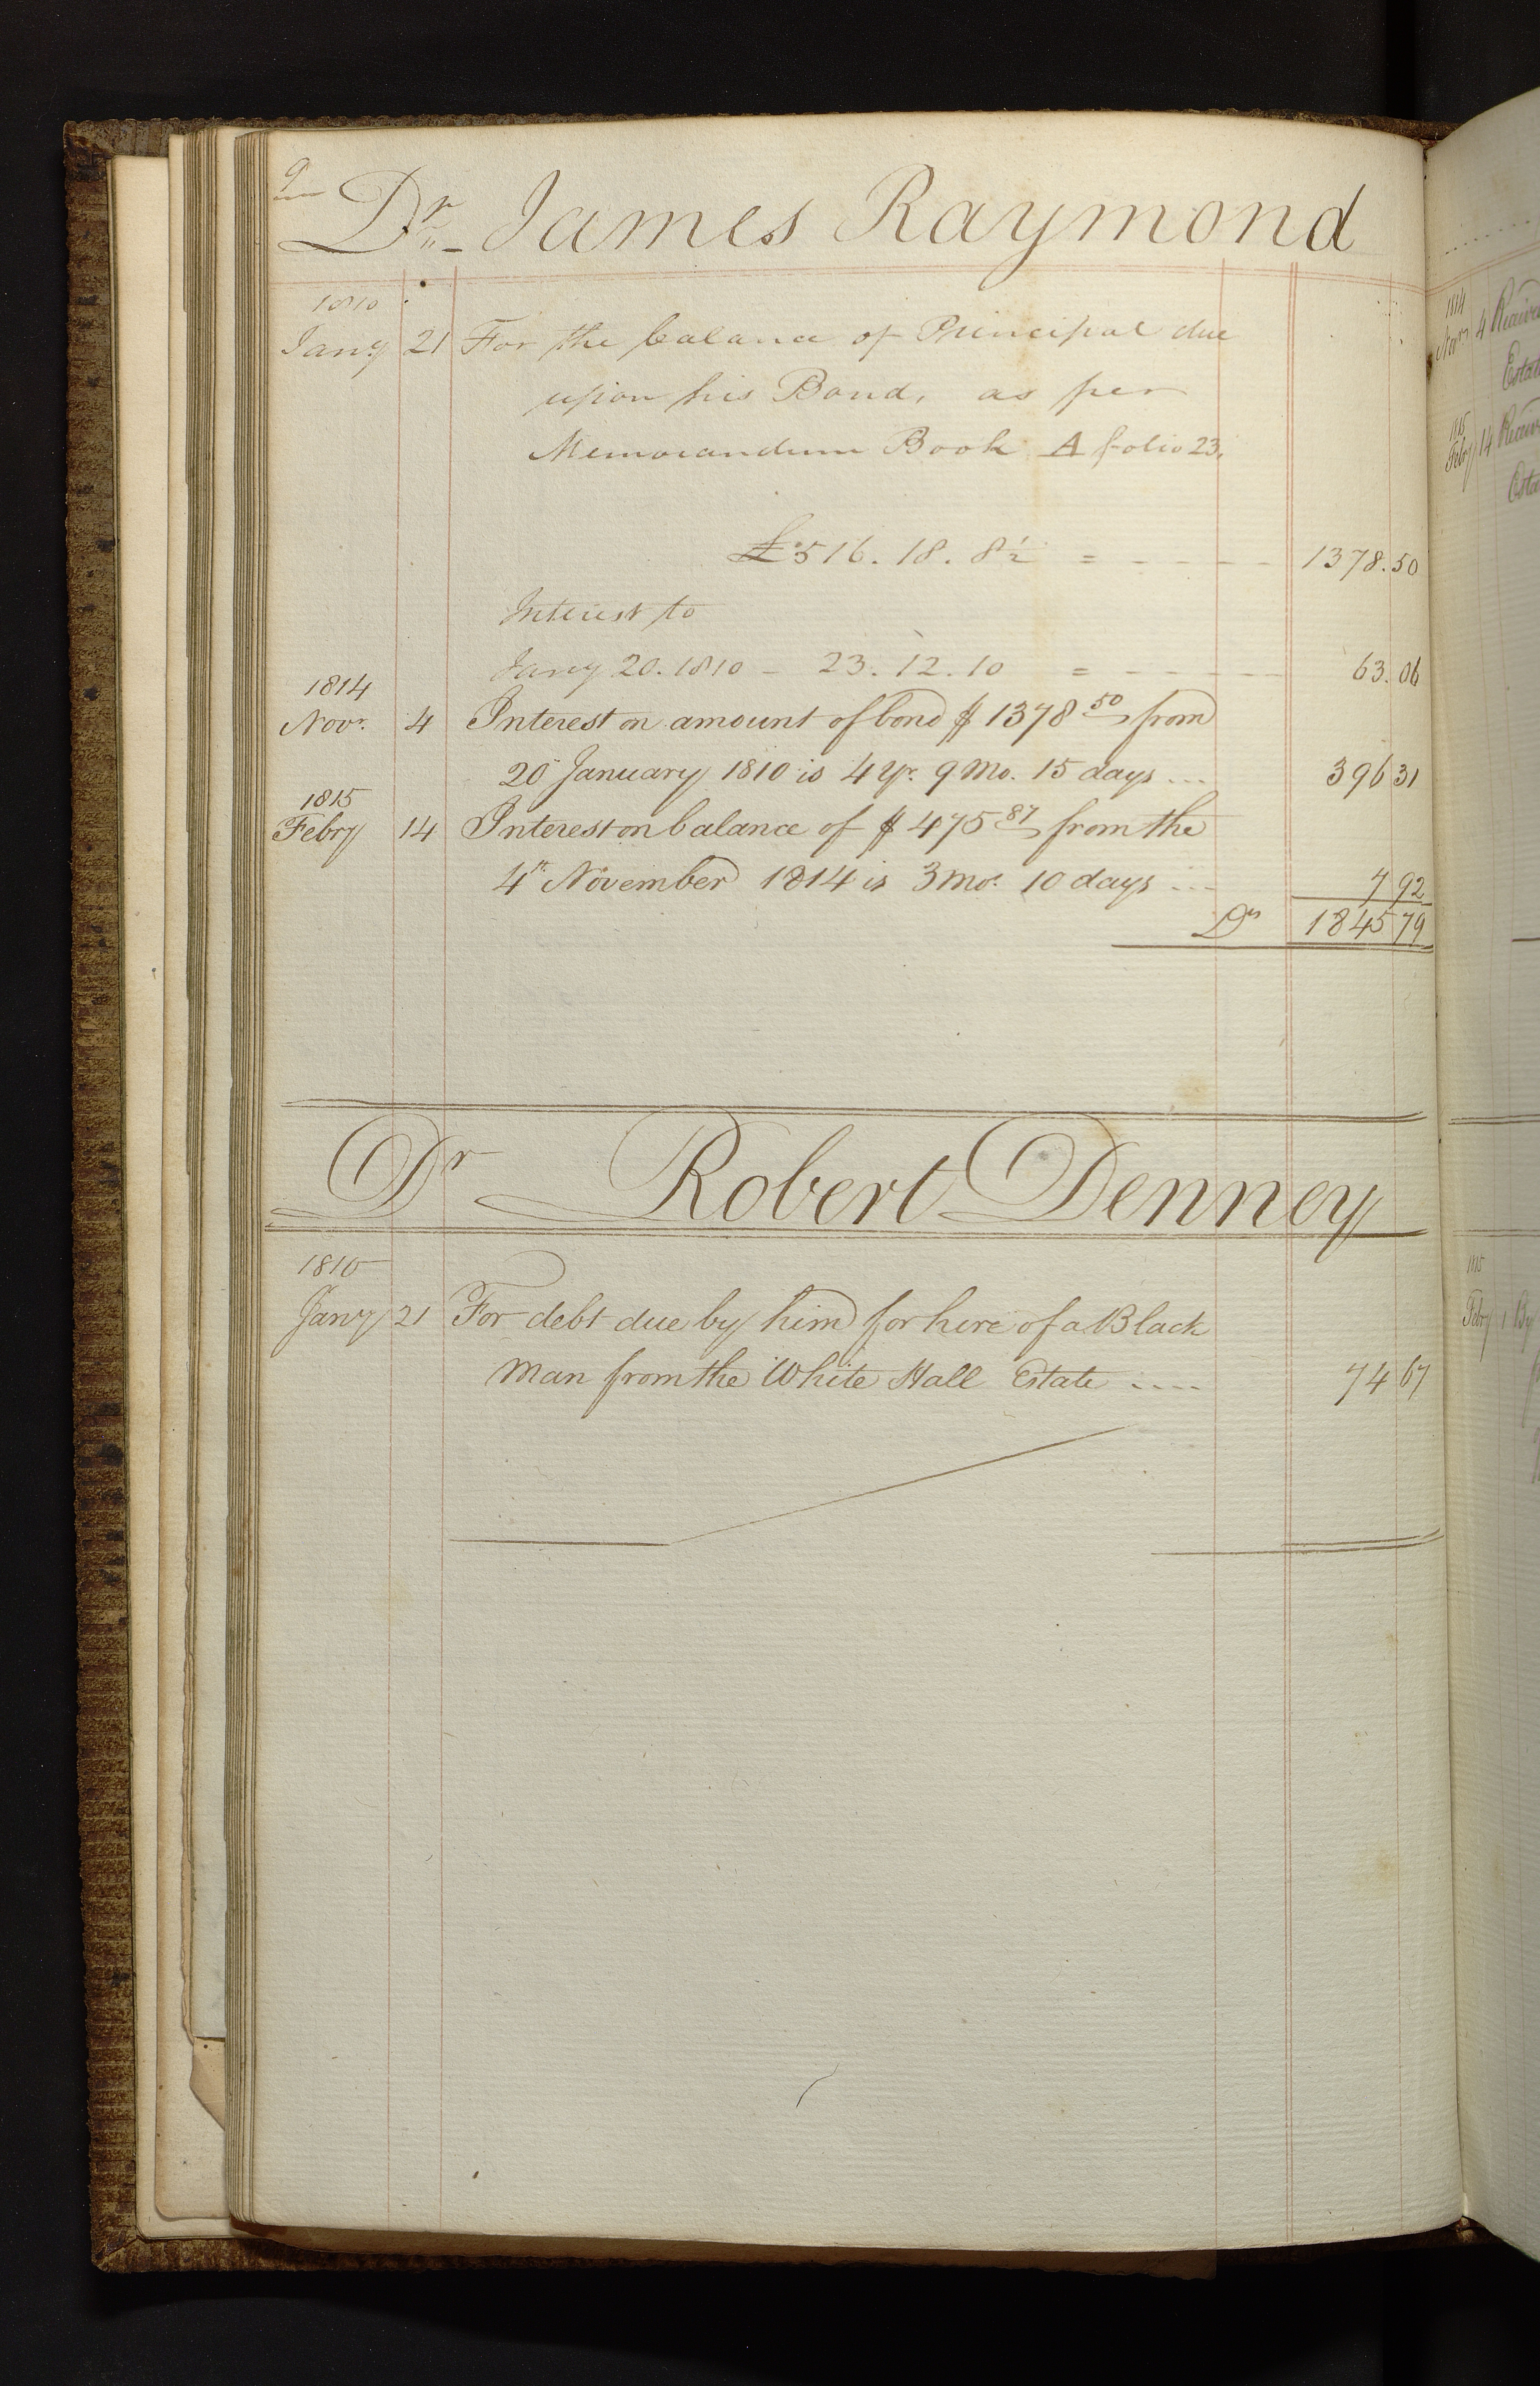 9
Dr. James Raymond
1810
Jany 21 For the balance of Principal due
upon his Bond, as per
Memorandum Book A folio 23.
£516. 18. 8½ = - - - - - 1378.50
Interest to
Jany 20. 1810 - 23. 12. 10 = - - - - 63.06
1814
Novr. 4 Interest on amount of bond $ 1378 50 from
20 January 1810 is 4 Yr. 9 Mo. 15 days ... 396 31
1815
Febry 14 Interest on balance of $ 475 87 from the
4th November 1814 is 3 Mo. 10 days ... 7 92
Drs 1845 79
Dr Robert Denney
1810
Jany 21 For debt due by him for hire of a Black
Man from the White Hall Estate .... 74 67
1814
Novr 4
Estate
1815
Febry 14
1815
Febry 1 By